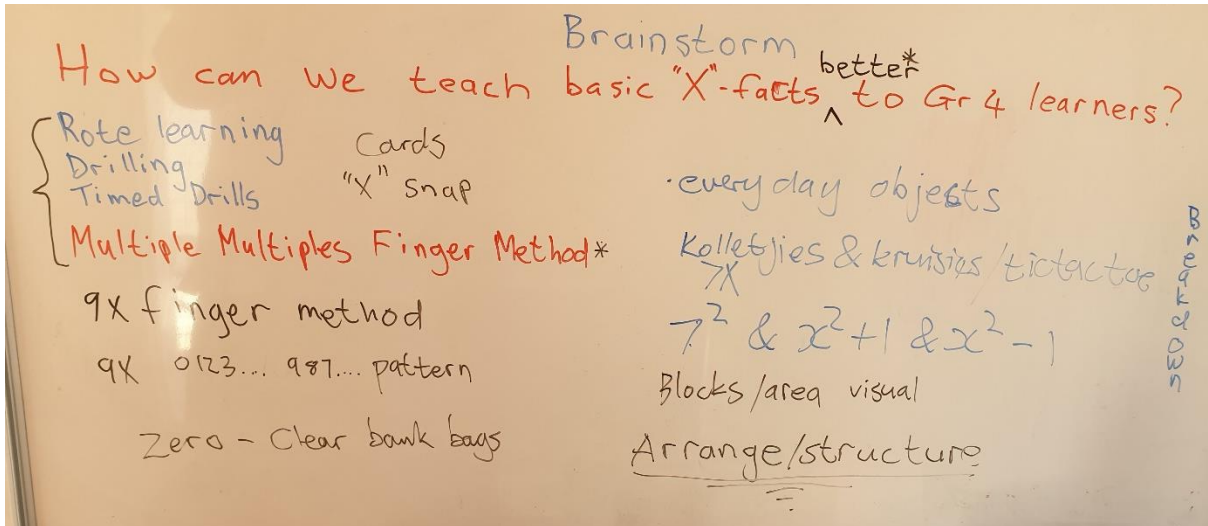 Brainstorm
How can we teach basic "X"-facts better* to Gr 4 learners?
Rote learning
Drilling
Timed Drills
Multiple Multiples Finger Method*
9X finger method
9X 0123... 987.... pattern
Zero - Clear bank bags
Cards
"X" Snap
·everyday objects
Kolletjies & kruisies/tictactoe
7X
7² & x²+1 & x²-1
Blocks/area visual
Arrange/structure
Breakdown